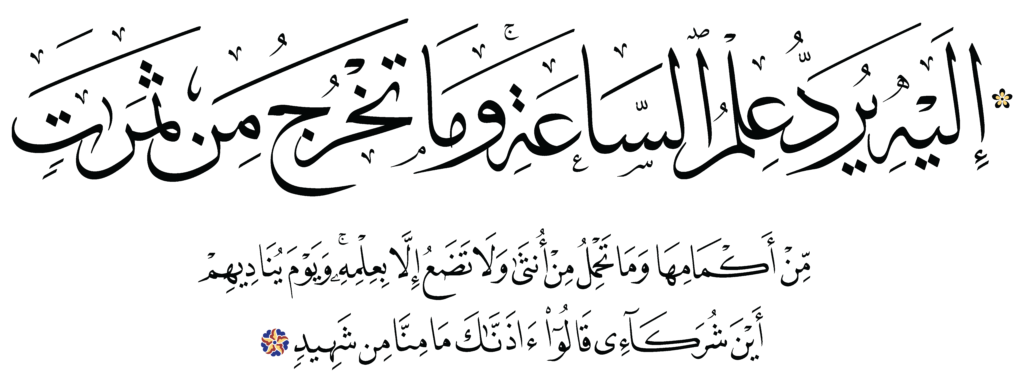 إِلَيْهِ يُرَدُّ عِلْمُ ٱلسَّاعَةِ ۚ وَمَا تَخْرُجُ مِن ثَمَرَٰتٍ
مِّنْ أَكْمَامِهَا وَمَا تَحْمِلُ مِنْ أُنثَىٰ وَلَا تَضَعُ إِلَّا بِعِلْمِهِۦ ۚ وَيَوْمَ يُنَادِيهِمْ
أَيْنَ شُرَكَآءِى قَالُوٓا۟ ءَاذَنَّـٰكَ مَا مِنَّا مِن شَهِيدٍ